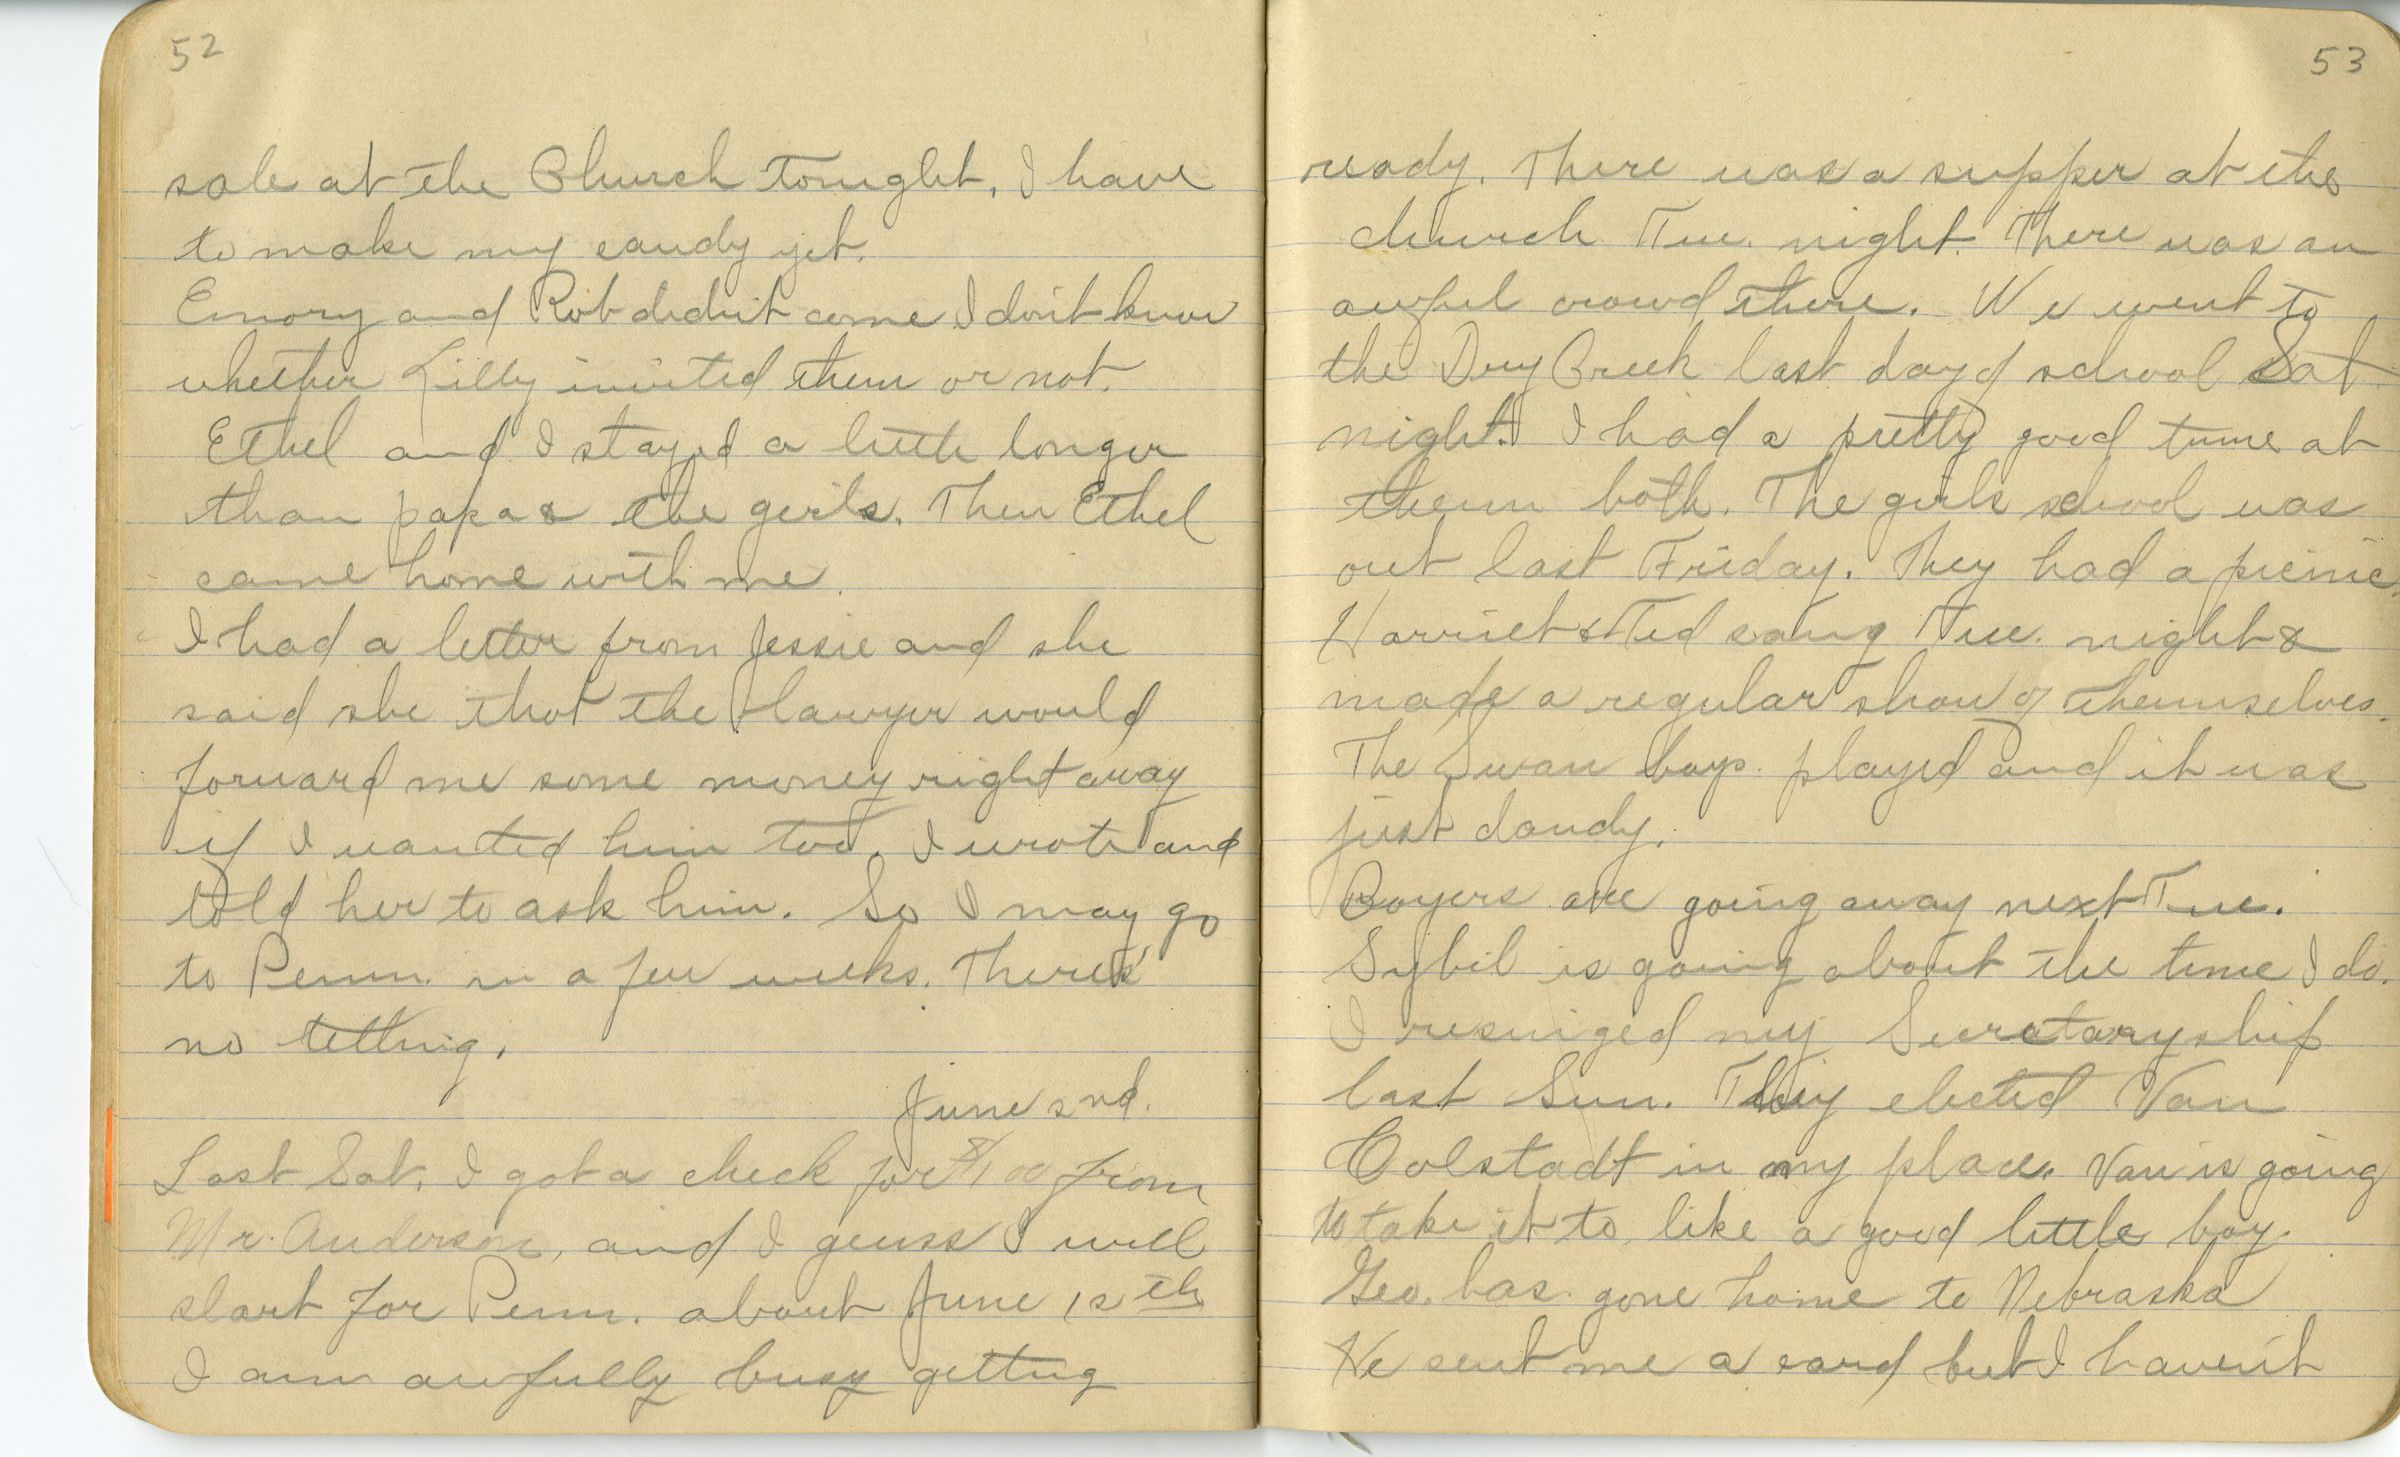 52
sale at the Church tonight. I have
to make my candy yet.
Emory and Rob didn't come I don't know
whether Lilly invited them or not.
Ethel and I stayed a little longer
than papa & the girls. Then Ethel
came home with me.
I had a letter from Jessie and she
said she that the lawyer would
forward me some money right away
if I wanted him too. I wrote and
told her to ask him. So I may go
to Penn. in a few weeks. There's
no telling.
June 2nd.
Last Sat. I got a check for $100 from
Mr. Anderson, and I geuss I will
start for Penn. about June 12th
I am awfully busy getting
53
ready. There was a supper at the
church Tue. night. There was an
awful crowd there. We went to
the Dry Creek last day of school Sat.
night. I had a pretty good time at
them both. The girls school was
out last Friday. They had a picnic.
Harriet & Ted sang Tue. night &
made a regular show of themselves.
The Swan boys played and it was
just dandy.
Boyers are going away next Tue.
Sybil is going about the time I do.
I resinged my Secretaryship
last Sun. They elected Van
Colstadt in my place. Van is going
to take it to like a good little boy.
Geo. has gone home to Nebraska
He sent me a card but I haven't